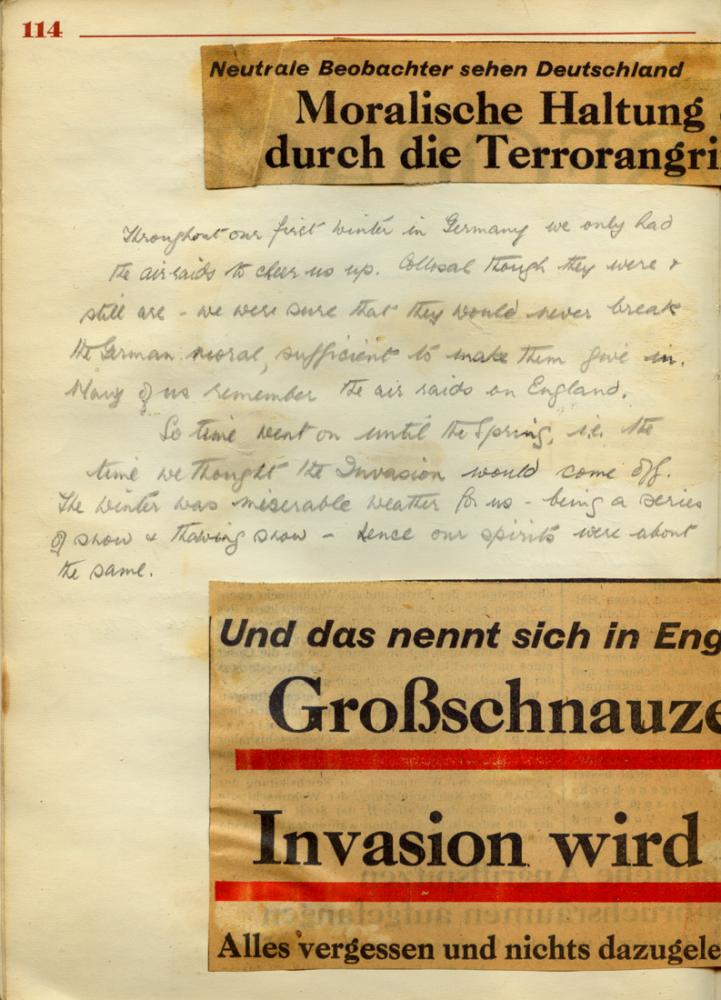 114
Neutrale Beobachter sehen Deutschland
Moralische Haltung
durch die Terrorangri
Throughout our first winter in Germany we only had
the air raids to cheer us up. Collosal though they were &
still are - we were sure that they would never break
the German moral, sufficient to make them give in.
Many of us remember the air raids on England.
So time went on until the Spring, i.e. the
time we thought the Invasion would come off.
The winter was miserable weather for us - being a series
of snow & thawing snow - hence our spirits were about
the same.
Und das nennt sich in Eng
Großschnauze
Invasion wird
Alles vergessen und nichts dazugele